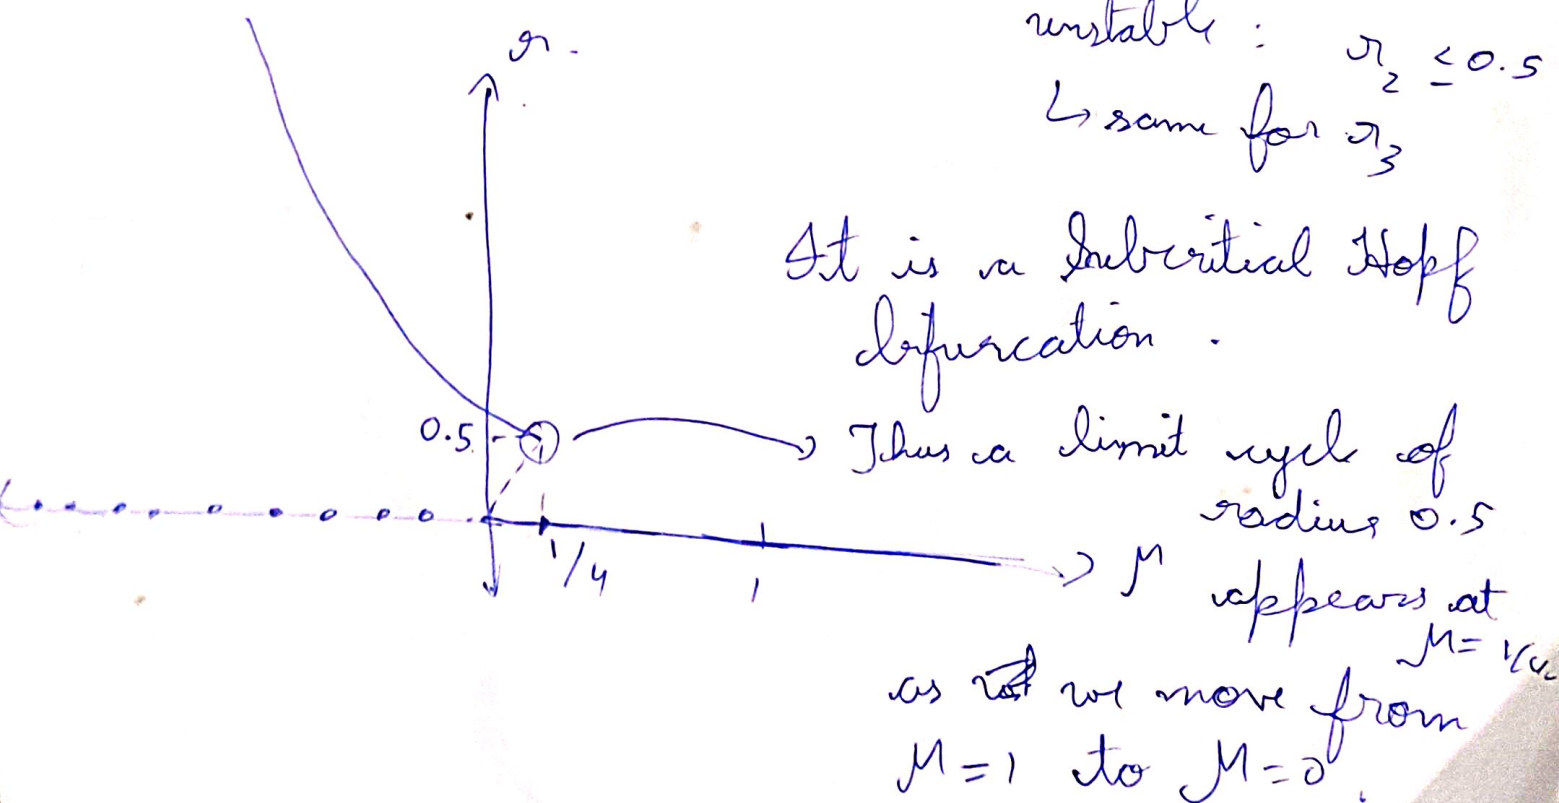 r.
unstable : r₂ ≤ 0.5
↳ same for r₃
It is a Subcritial Hopf
bifurcation .
0.5
Thus a limit cycle of
radius 0.5
1/4
1
μ
appears at
μ = 1/4
as we move from
μ = 1 to μ = 0 .